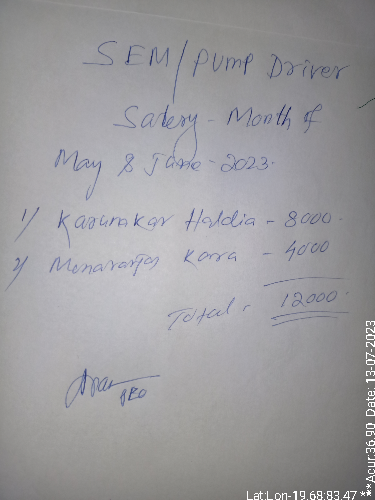 SEM/Pump Driver
Salery - Month of
May & June - 2023.
1) Karunakar Haldia - 8000.
2) Korra - 4000
Total = 12000.
PEO
Lat:Lon-19.68:83.47 ***Acur:36.90 Date: 13-07-2023